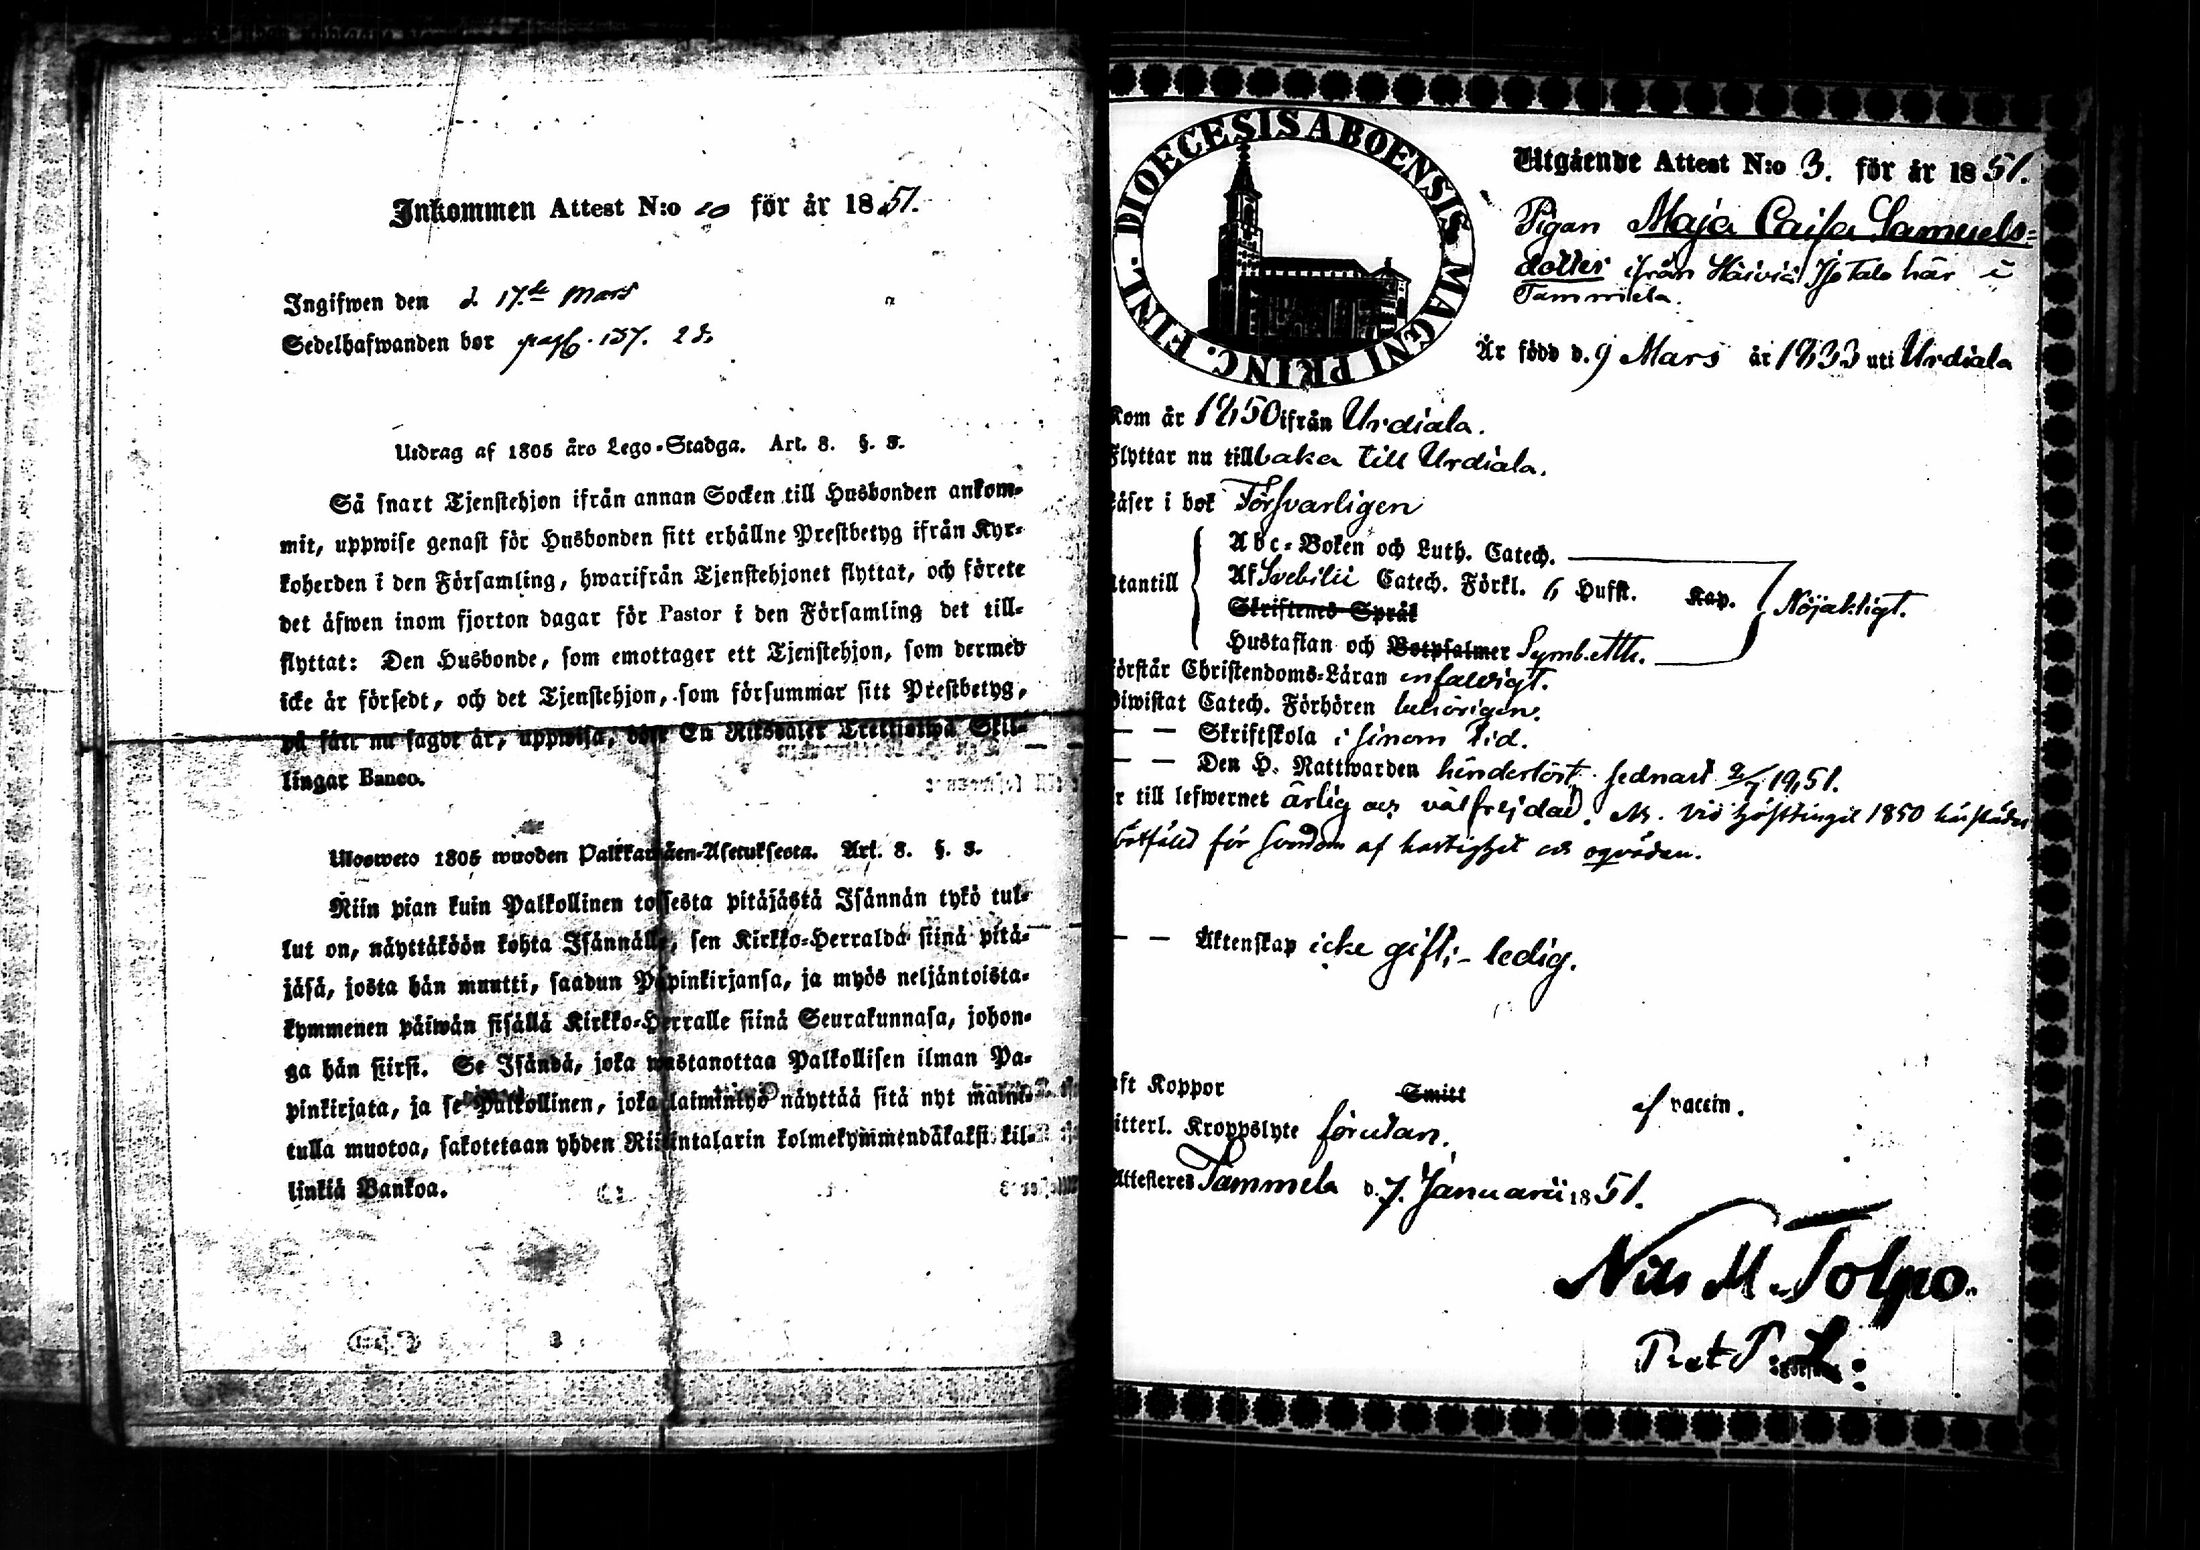 Inkommen Attest N:o 20 för år 1851.
Ingifwen den d. 17.de Mars
Sedelhafwanden bor pag. 137. 28.
Utdrag af 1805 års Lego-Stadga. Art. 8. §. 3.
Så snart Tjenstehjon ifrån annan Socken till Husbonden ankom-
mit, uppwise genast för Husbonden sitt erhållne Prestbetyg ifrån Kyr-
koherden i den Församling, hwarifrån Tjenstehjonet flyttat, och förete
det äfwen inom fjorton dagar för Pastor i den Församling det till-
flyttat: Den Husbonde, som emottager ett Tjenstehjon, som dermed
icke är försedt, och det Tjenstehjon, som försummar sitt Prestbetyg,
på sätt nu sagdt är, uppwisa, böte En Riksdaler Trettiotwå Skil-
lingar Banco.
Ulosweto 1805 wuoden Palkkawäen-Asetuksesta. Art. 8. §. 3.
Niin pian kuin Palkollinen toisesta pitäjästä Isännän tykö tul-
lut on, näyttäköön kohta Isännälle, sen Kirkko-Herralda siinä pitä-
jäsä, josta hän muutti, saadun Papinkirjansa, ja myös neljäntoista-
kymmenen päiwän sisällä Kirkko-Herralle siinä Seurakunnasa, johon-
ga hän siirsi. Se Isändä, joka wastanottaa Palkollisen ilman Pa-
pinkirjata, ja se Palkollinen, joka laiminlyö näyttää sitä nyt maini-
tulla muotoa, sakotetaan yhden Riikintalarin kolmekymmendäkaksi kil-
linkiä Bankoa.
DIOECESIS ABOENSIS MAGNI PRINC. FINL.
Utgående Attest N:o 3. för år 1851.
Pigan Maja Caisa Samuels-
dotter ifrån här i
Tammela.
Är född d. 9 Mars år 1833 uti Urdiala
Kom år 1850 ifrån Urdiala.
Flyttar nu tillbaka till Urdiala.
Läser i bok Försvarligen
Abc-Boken och Luth. Catech.
Utantill Af Svebilii Catech. Förkl. 6 Hufst. Kap. Nöjaktigt.
Skriftenes Språk
Hustaflan och Botpsalmer Symb. Ath.
Förstår Christendoms-Läran enfaldigt.
Biwistat Catech. Förhören behörigen.
— — Skriftskola i sinom tid.
— — Den H. Nattwarden hinderlöst, sednast
Är till lefwernet ärlig och välfrejdad. NB. vid Hösttinget 1850
bötfälld för af hastighet och oqväden.
— — Äktenskap icke gift; - ledig.
Haft Koppor Smitt af vaccin.
Ytterl. Kroppslyte förutan.
Attesteres Tammela d. 7. Januarii 1851.
Nils M. Tolpo.